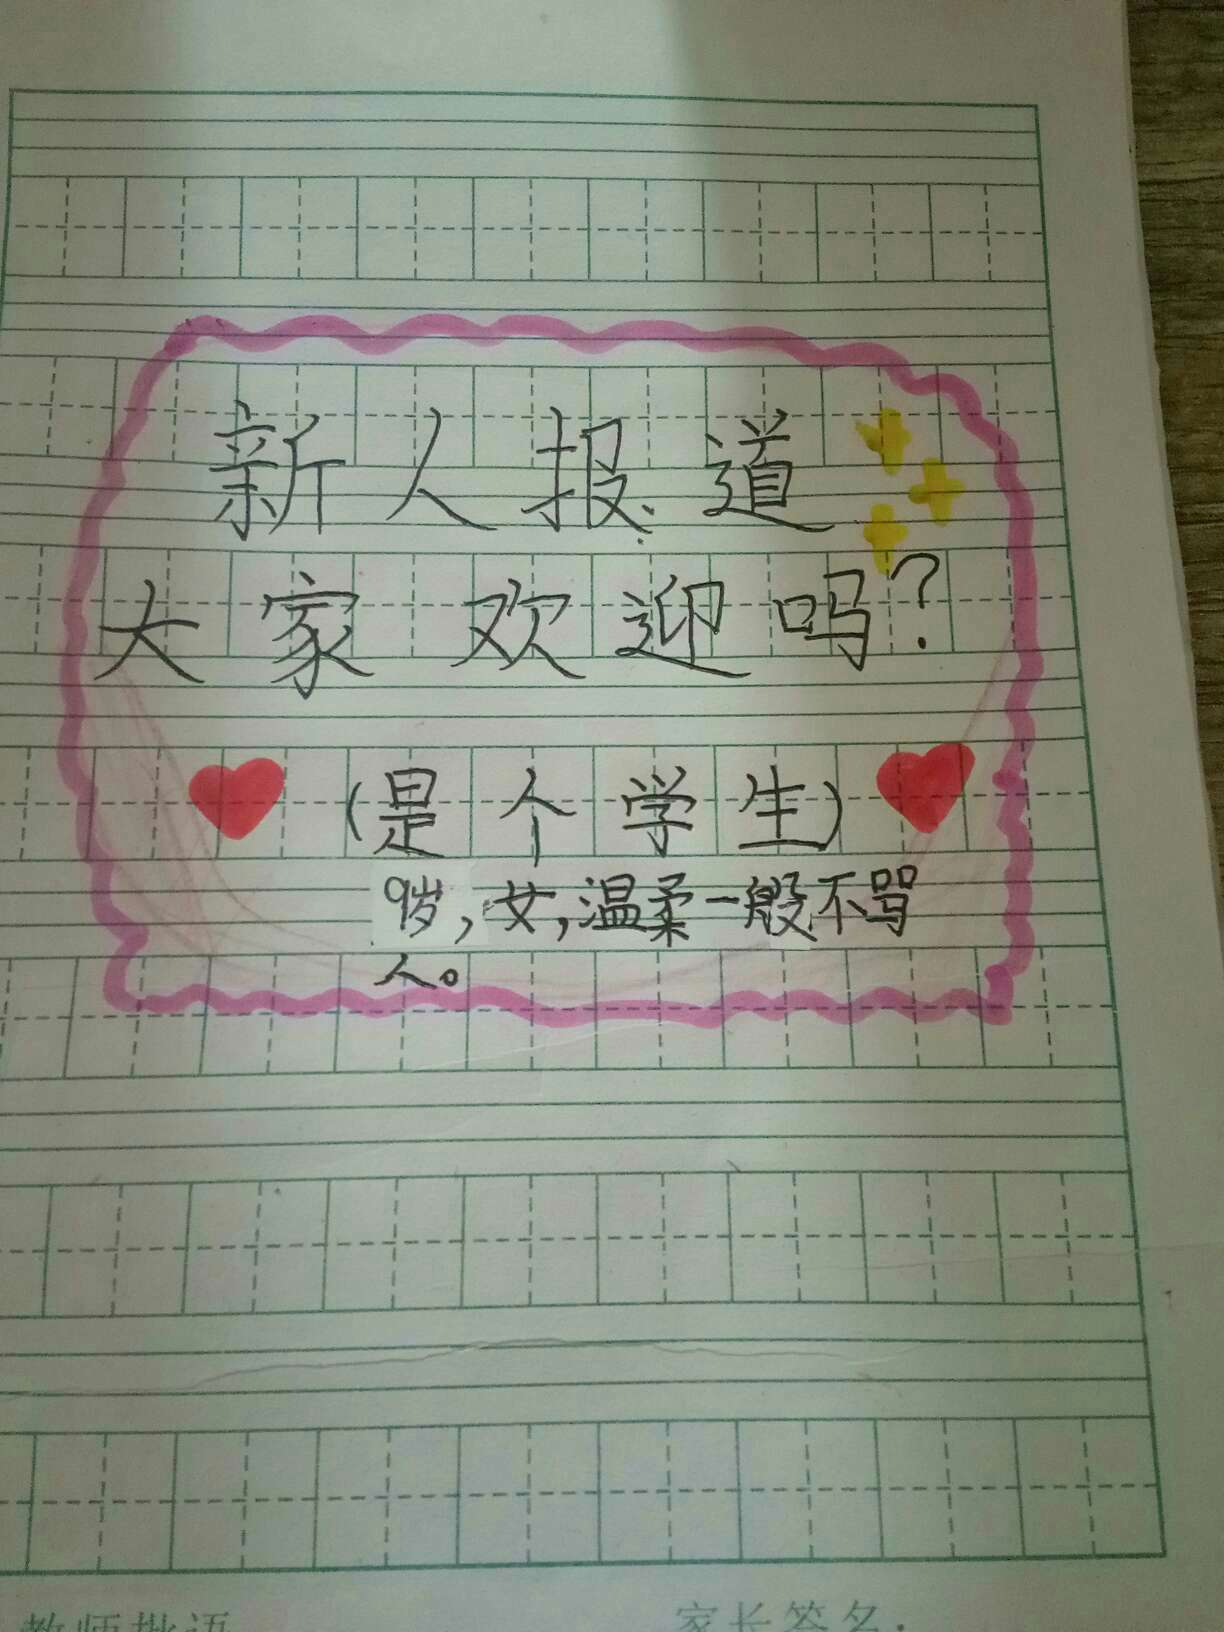 新人报道
大家欢迎吗?
(是个学生)
9岁,女,温柔一般不骂
人。
教师批语
家长签名: